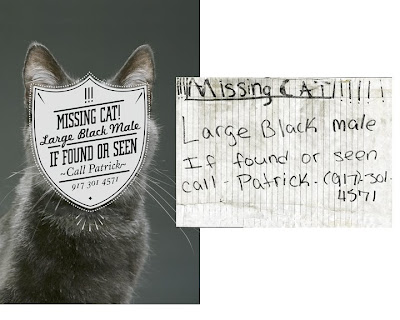 !!!
MISSING CAT!
Large Black Male
IF FOUND OR SEEN
~Call Patrick~
917 301 4571
!!!Missing CAT!!!!!!
Large Black male
If found or seen
call - Patrick-(917)-301-
4571